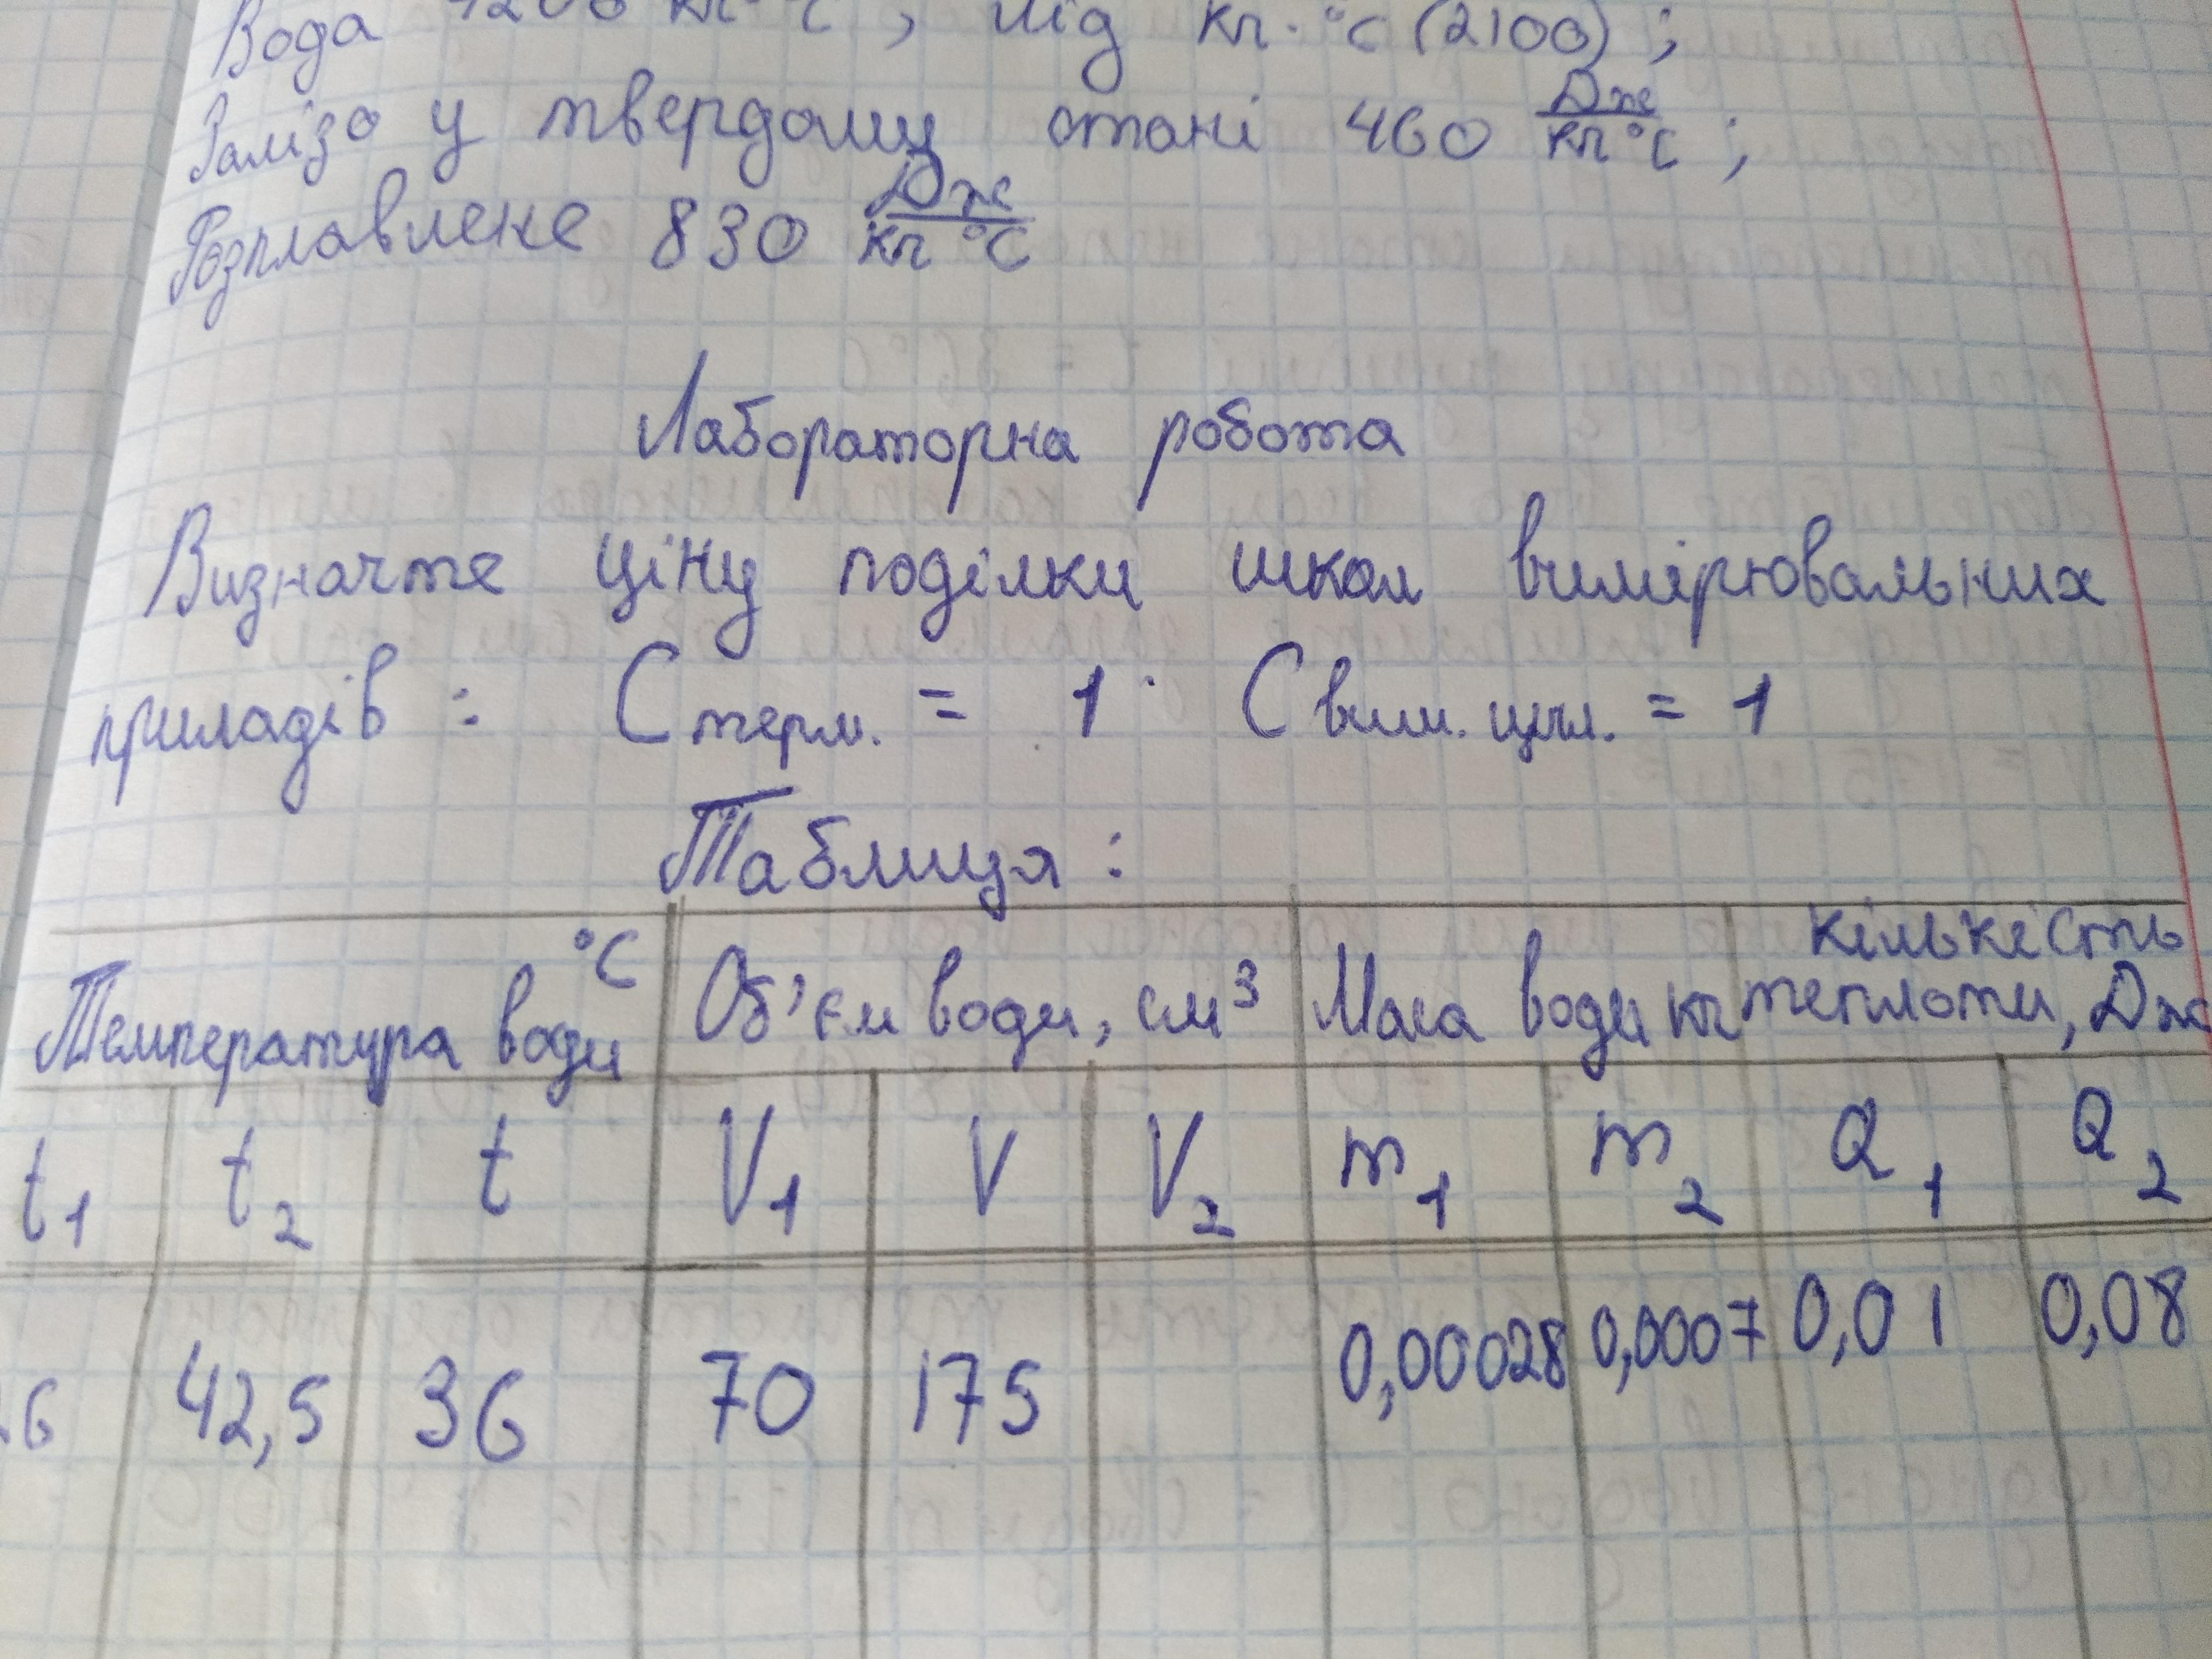 Вода 4200 кг·°С, лід кг·°С (2100);
Залізо у твердому стані 460 Дж/кг°С;
Розплавлене 830 Дж/кг °С
Лабораторна робота
Визначте ціну поділки шкал вимірювальних
приладів: Стерм. = 1 · Свим. цил. = 1
Таблиця:
Температура води °С | Об'єм води, см³ | Маса води кг | кількість теплоти, Дж
t₁ | t₂ | t | V₁ | V | V₂ | m₁ | m₂ | Q₁ | Q₂
42,5 | 36 | 70 | 175 | | 0,00028 | 0,0007 | 0,01 | 0,08